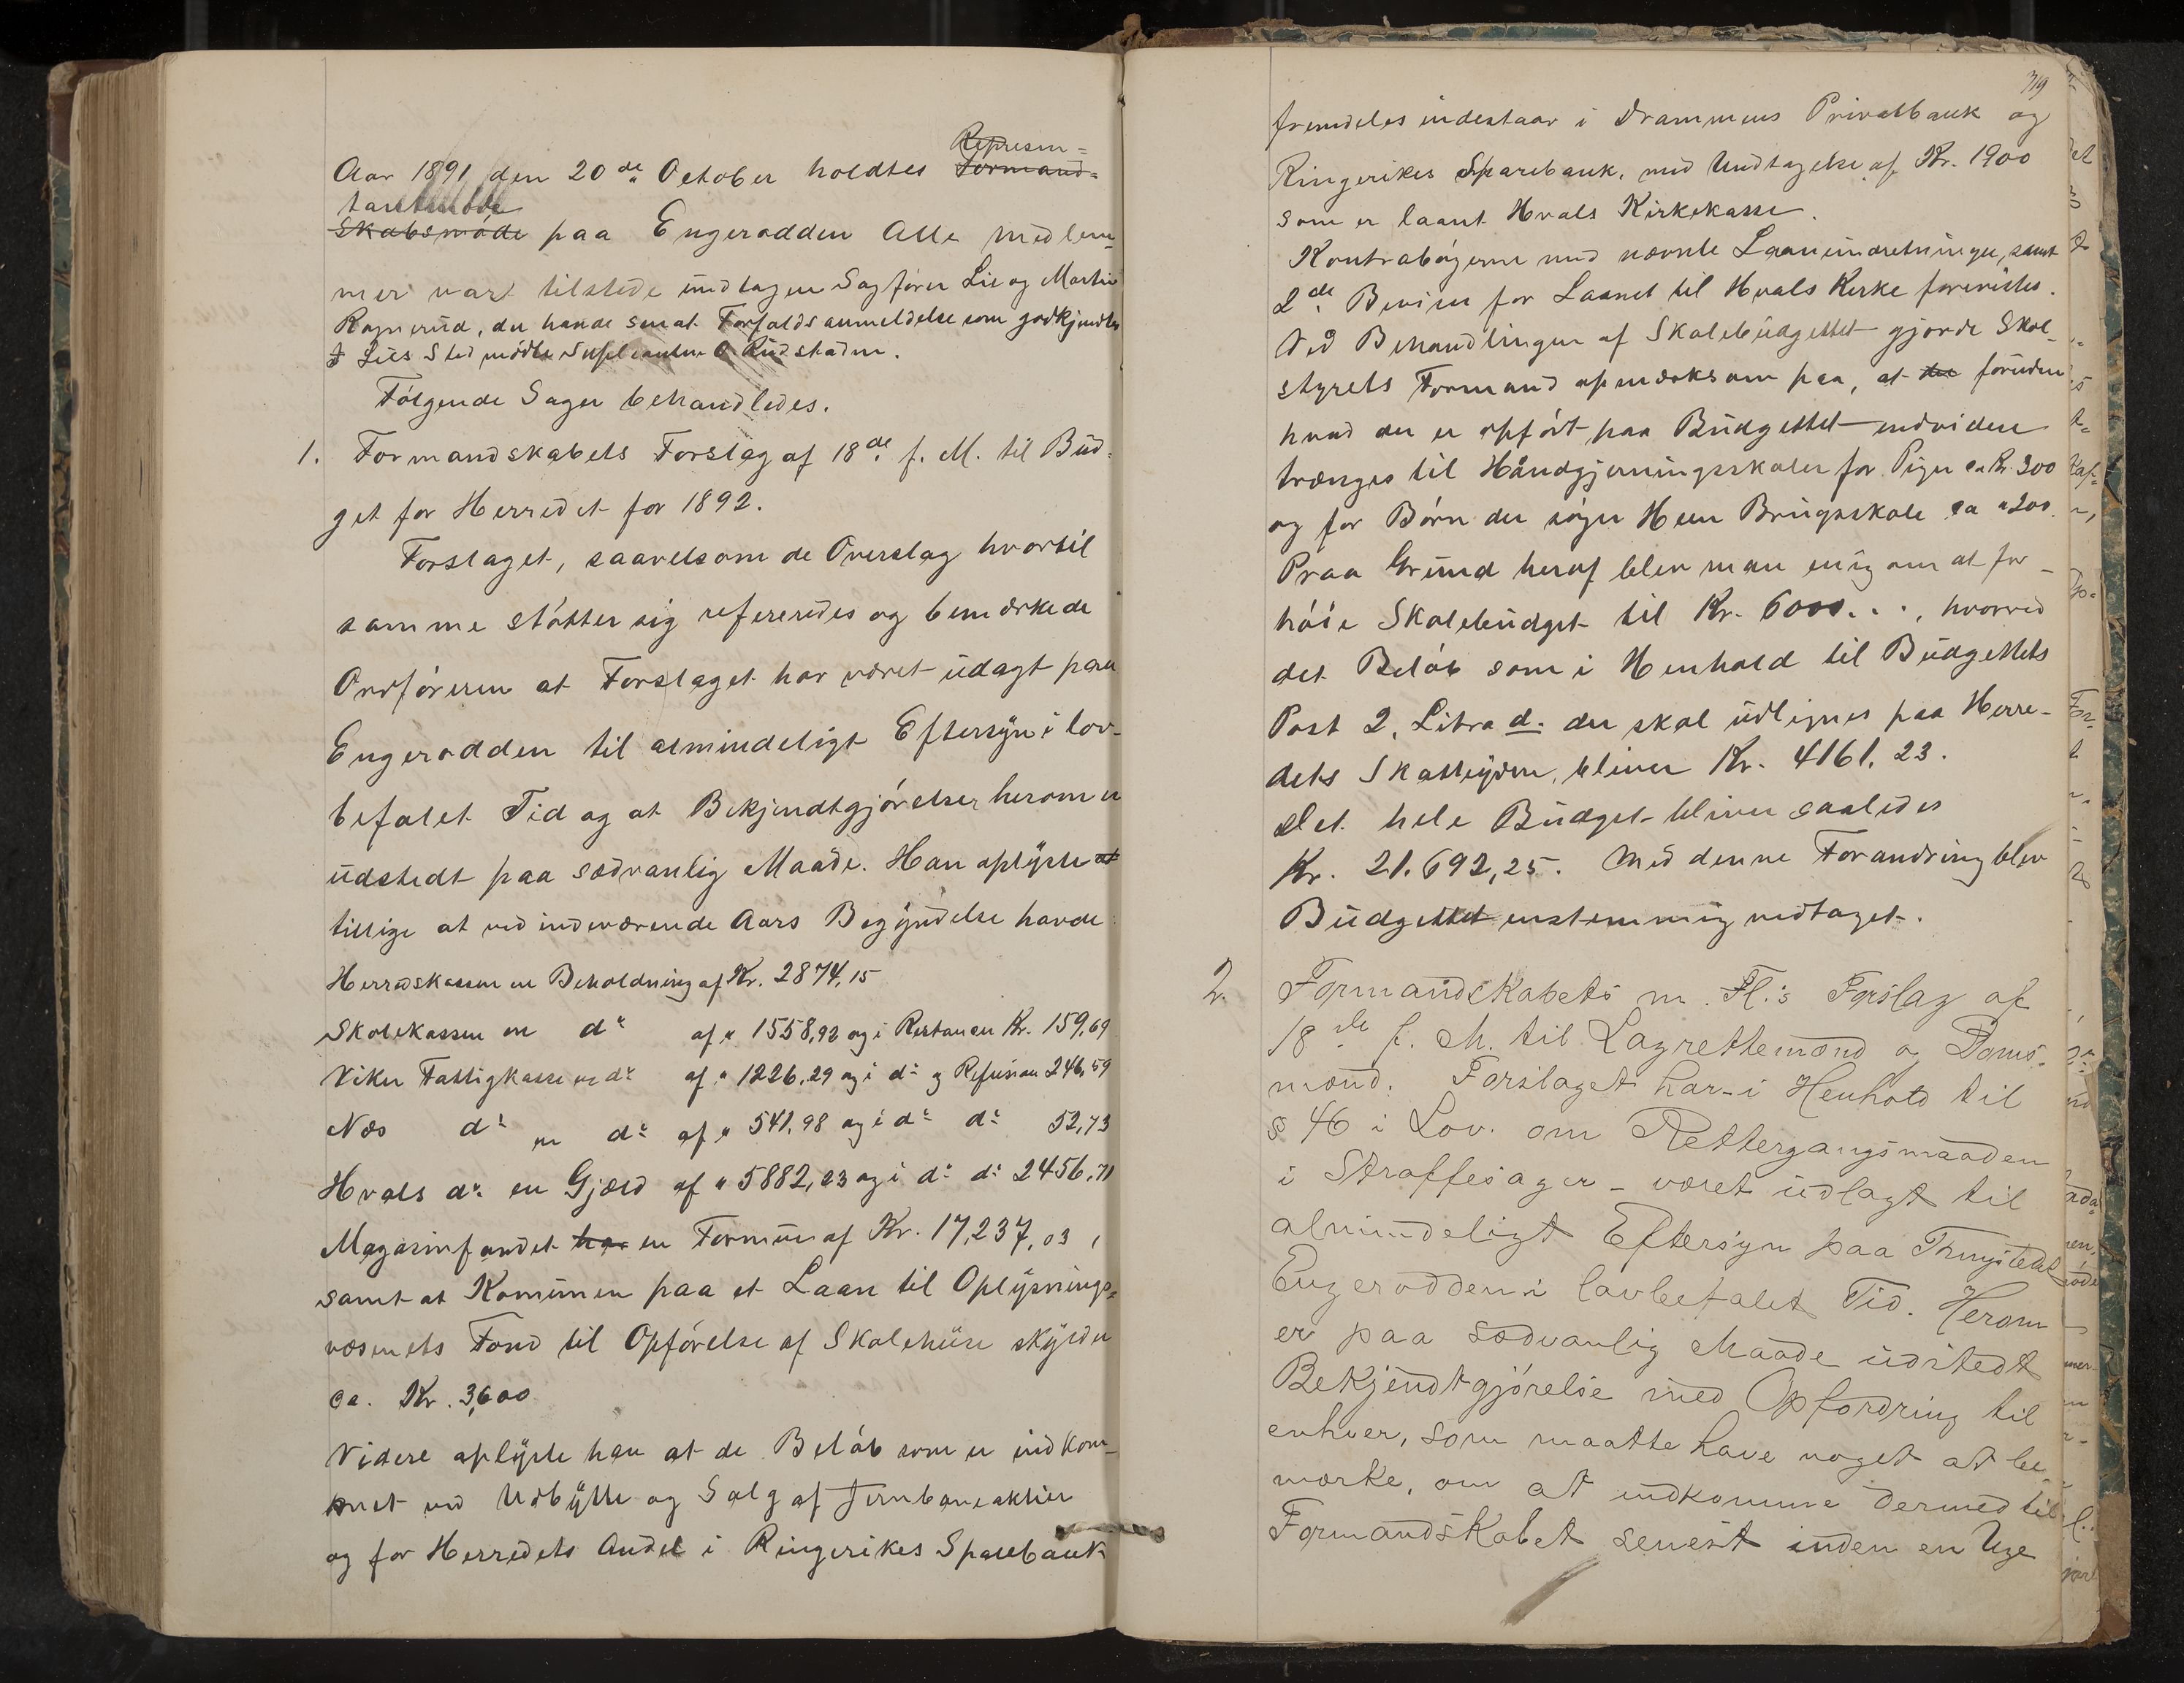 Represen=
Aar 1891 den 20de October holdtes Formand-
tantmøde
skabsmøde paa Engerodden Alle medlem-
mer var tilstede undtagen Sagfører Lie og Martin
Ragnrud, der havde sendt Forfaldsanmeldelse som godkjendtes
I Lies Sted mødte Supleanten O. Rudstaden.
Følgende Sager behandledes.
1. Formandskabets Forslag af 18de f. M. til Bud-
get for Herredet for 1892.
Forslaget, saavelsom de Overslag hvortil
samme støtter sig refereredes og bemærkede
Ordføreren at Forslaget har været udlagt paa
Engerodden til almindeligt Eftersyn i lov-
befalet Tid og at Bekjendtgjørelser herom er
udstedt paa sædvanlig Maade. Han oplyste at
tillige at ved indeværende Aars Begyndelse havde
Herredskassen en Beholdning af Kr. 2874,15
Skolekassen en do af " 1558,92 og i Restancer Kr. 159,69
Viker Fattigkasse en do af " 1226,29 og i do og Refusion 246,59
Næs do en do af " 541,98 og i do do 52,73
Hvals do en Gjæld af " 5882,23 og i do do 2456,71
Magasinfondet har en Formue af Kr. 17,237,03,
samt at Komunen paa et Laan til Oplysnings-
væsenets Fond til Opførelse af Skolehuse skylder
ca. Kr. 3,600
Videre oplyste han at de Beløb som er indkom-
met ved Udbytte og Salg af Jernbaneaktier
og for Herredets Andel i Ringerikes Sparebank
319
fremdeles indestaar i Drammens Privatbank og
Ringerikes Sparebank, med Undtagelse af Kr. 1900
som er laant Hvals Kirkekasse.
Kontrabøgerne med nævnte Laaneindretninger, samt
2de Beviser for Laanet til Hvals Kirke forevistes.
Ved Behandlingen af Skolebudgettet gjorde Skol-
styrets Formand opmærksom paa, at der foruden
hvad der er opført paa Budgettet endvidere
trænges til Håndgjerningsskoler for Piger ca Kr. 300
og for Børn der søger Heen Brugsskole ca " 200.
Paa Grund heraf blev man enig om at for-
høie Skolebudget til Kr. 6000..., hvorved
det Beløb som i Henhold til Budgettets
Post 2, Litra d. der skal udlignes paa Herre-
dets Skatteydere, bliver Kr. 4161,23.
Det hele Budget bliver saaledes
Kr. 21.692,25. Med denne Forandring blev
Budgettet enstemmig vedtaget.
2. Formandskabets m. Fl.'s Forslag af
18de f. M. til Lagrettemænd og Doms-
mænd. Forslaget har - i Henhold til
§ 46 i Lov. om Rettergangsmaaden
i Straffesager - været udlagt til
almindeligt Eftersyn paa Thingstedet
Engerodden i lovbefalet Tid. Herom
er paa sædvanlig Maade udstedt
Bekjendtgjørelse med Opfordring til
enhver, som maatte have noget at be-
mærke, om at indkomme dermed til
Formandskabet senest inden en Uge